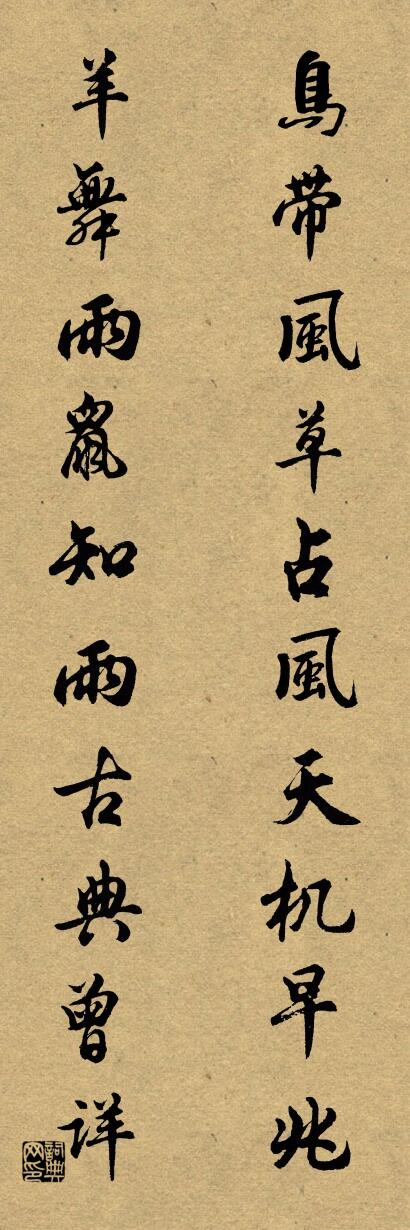 鳥帶風草占風天机早兆
羊舞雨鼠知雨古典曾详
詞典网印